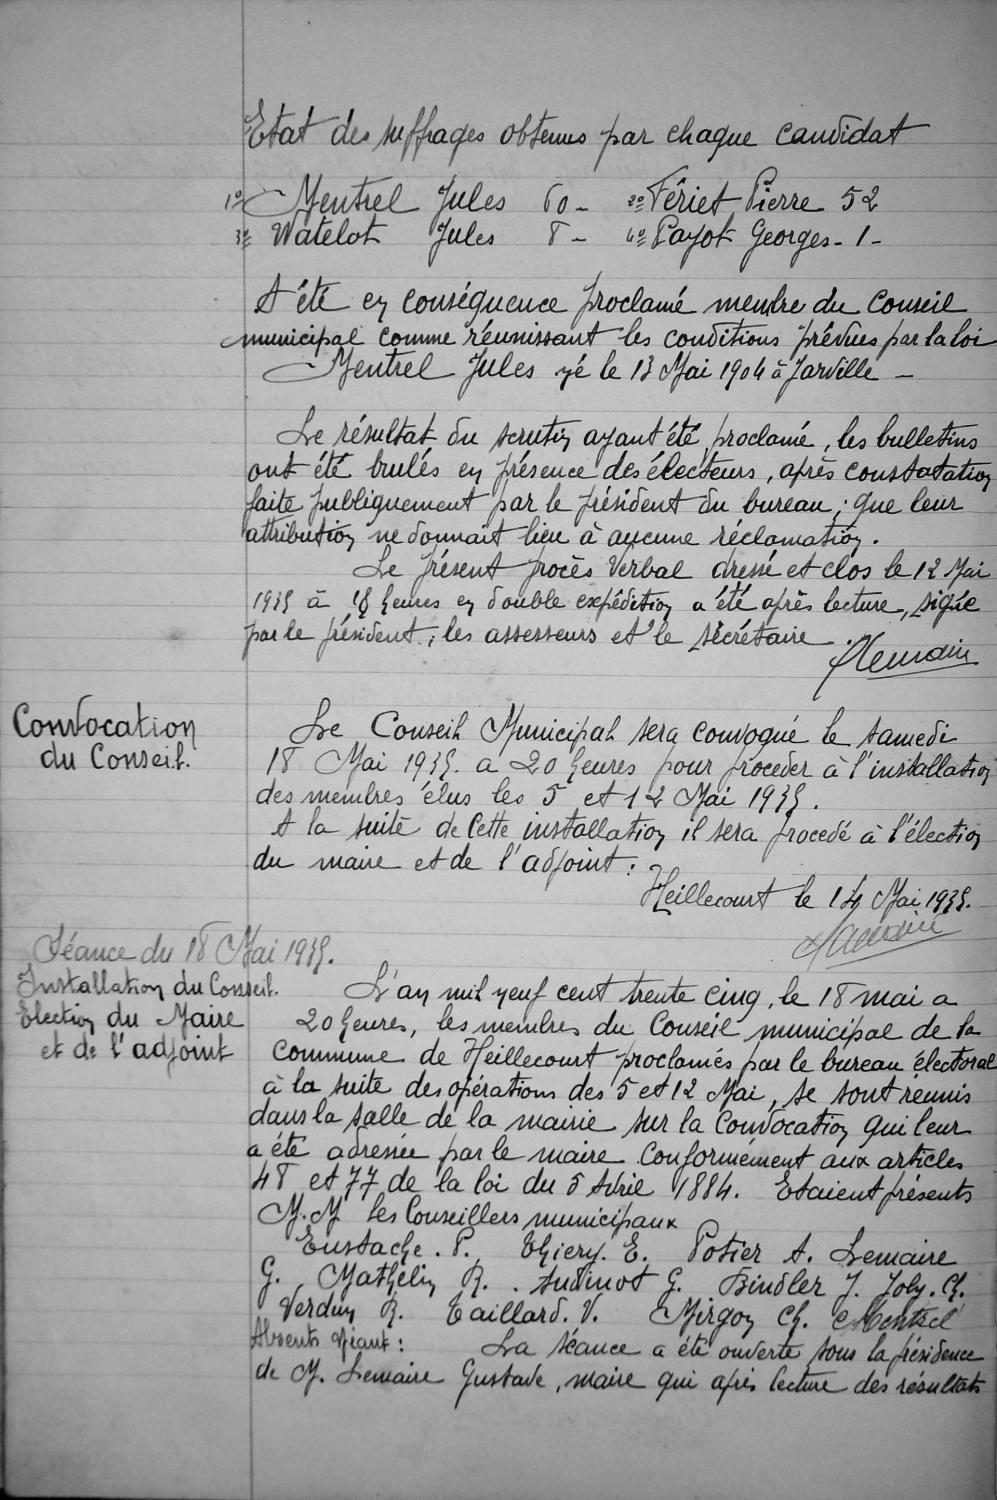 Etat des suffrages obtenus par chaque candidat
1º Mentrel Jules 60 - 2º Fériet Pierre 52
3º Watelot Jules 8 - 4º Payot Georges - 1 -
A été en conséquence proclamé membre du Conseil
municipal comme réunissant les conditions prévues par la loi
Mentrel Jules né le 13 Mai 1904 à Jarville -
Le résultat du scrutin ayant été proclamé, les bulletins
ont été brulés en présence des électeurs, après constatation
faite publiquement par le président du bureau; que leur
attribution ne donnait lieu à aucune réclamation.
Le présent procès Verbal dressé et clos le 12 Mai
1935 à 18 heures en double expédition a été après lecture, signée
par le président; les assesseurs et le secrétaire.
GLemaire
Convocation
du Conseil.
Le Conseil Municipal sera convoqué le samedi
18 Mai 1935. a 20 heures pour proceder à l'installation
des membres élus les 5 et 12 Mai 1935.
A la suite de Cette installation il sera procedé à l'élection
du maire et de l'adjoint:
Heillecourt le 14 Mai 1935.
GLemaire
Séance du 18 Mai 1935.
Installation du Conseil.
Election du Maire
et de l'adjoint
L'an mil neuf cent trente cinq, le 18 mai a
20 heures, les membres du Conseil municipal de la
Commune de Heillecourt proclamés par le bureau électoral
à la suite des opérations des 5 et 12 Mai, se sont reunis
dans la salle de la mairie sur la Convocation qui leur
a été adressée par le maire Conformément aux articles
48 et 77 de la loi du 5 Avril 1884. Etaient présents
M.M les Conseillers municipaux
Eustache. P. Thiery. E. Potier A. Lemaire
G. Mathelin R. . Audinot G. Bindler J. Joly. Ch.
Verdun R. Taillard. V. Mirgon Ch. Mentrel
Absents Néant: La séance a été ouverte sous la présidence
de M. Lemaire Gustave, maire qui après lecture des résultats